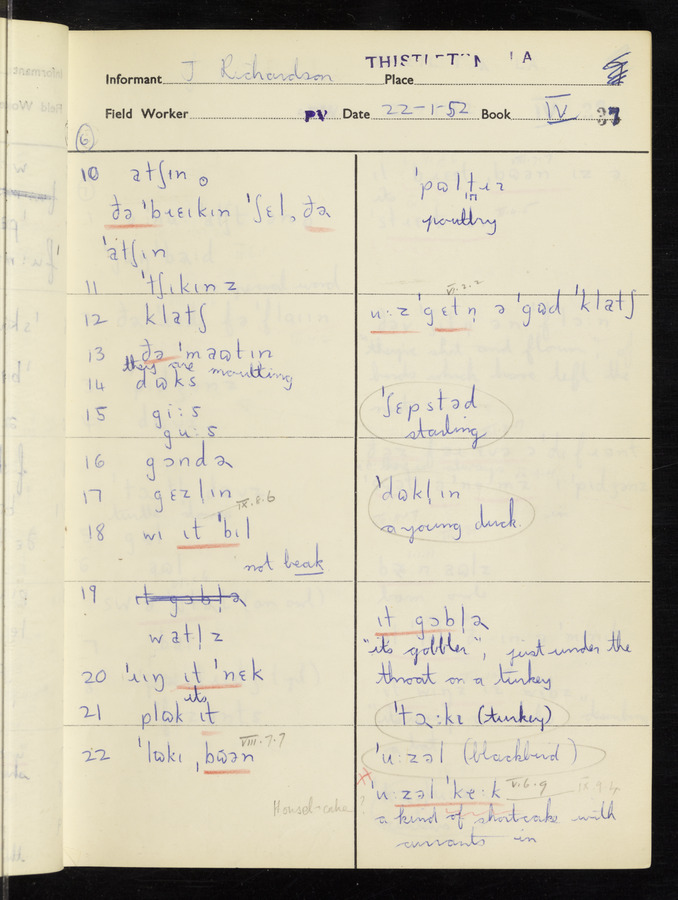 Informant J Richardson Place
Field Worker PV Date 22-1-52 Book IV 37
6
10 atʃɪn
ðə 'bɹɛɪkɪn 'ʃɛl, ðə
'atʃɪn
11 'tʃɪkɪnz
12 klatʃ
13 ðə 'maɷtɪn
they are moulting
14 dɷks
15 gi:s
gu:s
16 gɔndə
17 gɛzlɪn
IX.8.6
18 wɪ ɪt 'bɪl
not beak
19 ɪt gɔblə
watl̩z
20 'ɹɪŋ ɪt 'nɛk
its
21 plɷk ɪt
22 'lɷkɪ ˌbɷ̄ən
VIII.7.7
'pɷltɹɪ
ɪn
poultry
VI.2.2
u:z 'gɛtn̩ ə 'gɷd 'klatʃ
'ʃɛpstəd
starling
'dɷklɪn
a young duck.
ɪt gɔblə
"its gobbler", just under the
throat on a turkey
'tə:kɪ (turkey)
'u:zəl (blackbird)
'u:zəl 'kɛ:k V.6.9
a kind of shortcake with
currants in
Housel-cake?